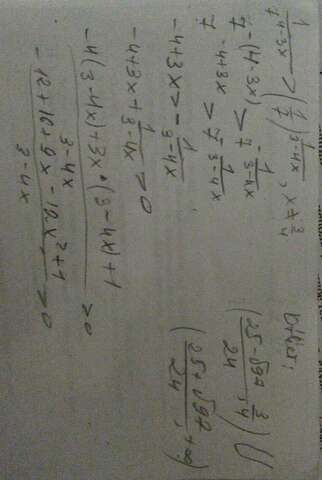 1/7^(4-3x) > (1/7)^(1/(3-4x)), x ≠ 3/4
7^(-(4-3x)) > 7^(-1/(3-4x))
7^(-4+3x) > 7^(-1/(3-4x))
-4+3x > -1/(3-4x)
-4+3x + 1/(3-4x) > 0
(-4(3-4x)+3x·(3-4x)+1)/(3-4x) > 0
(-12+16+9x-12x²+1)/(3-4x) > 0
Ответ:
((25-√97)/24; 3/4) ∪
((25+√97)/24; +∞)